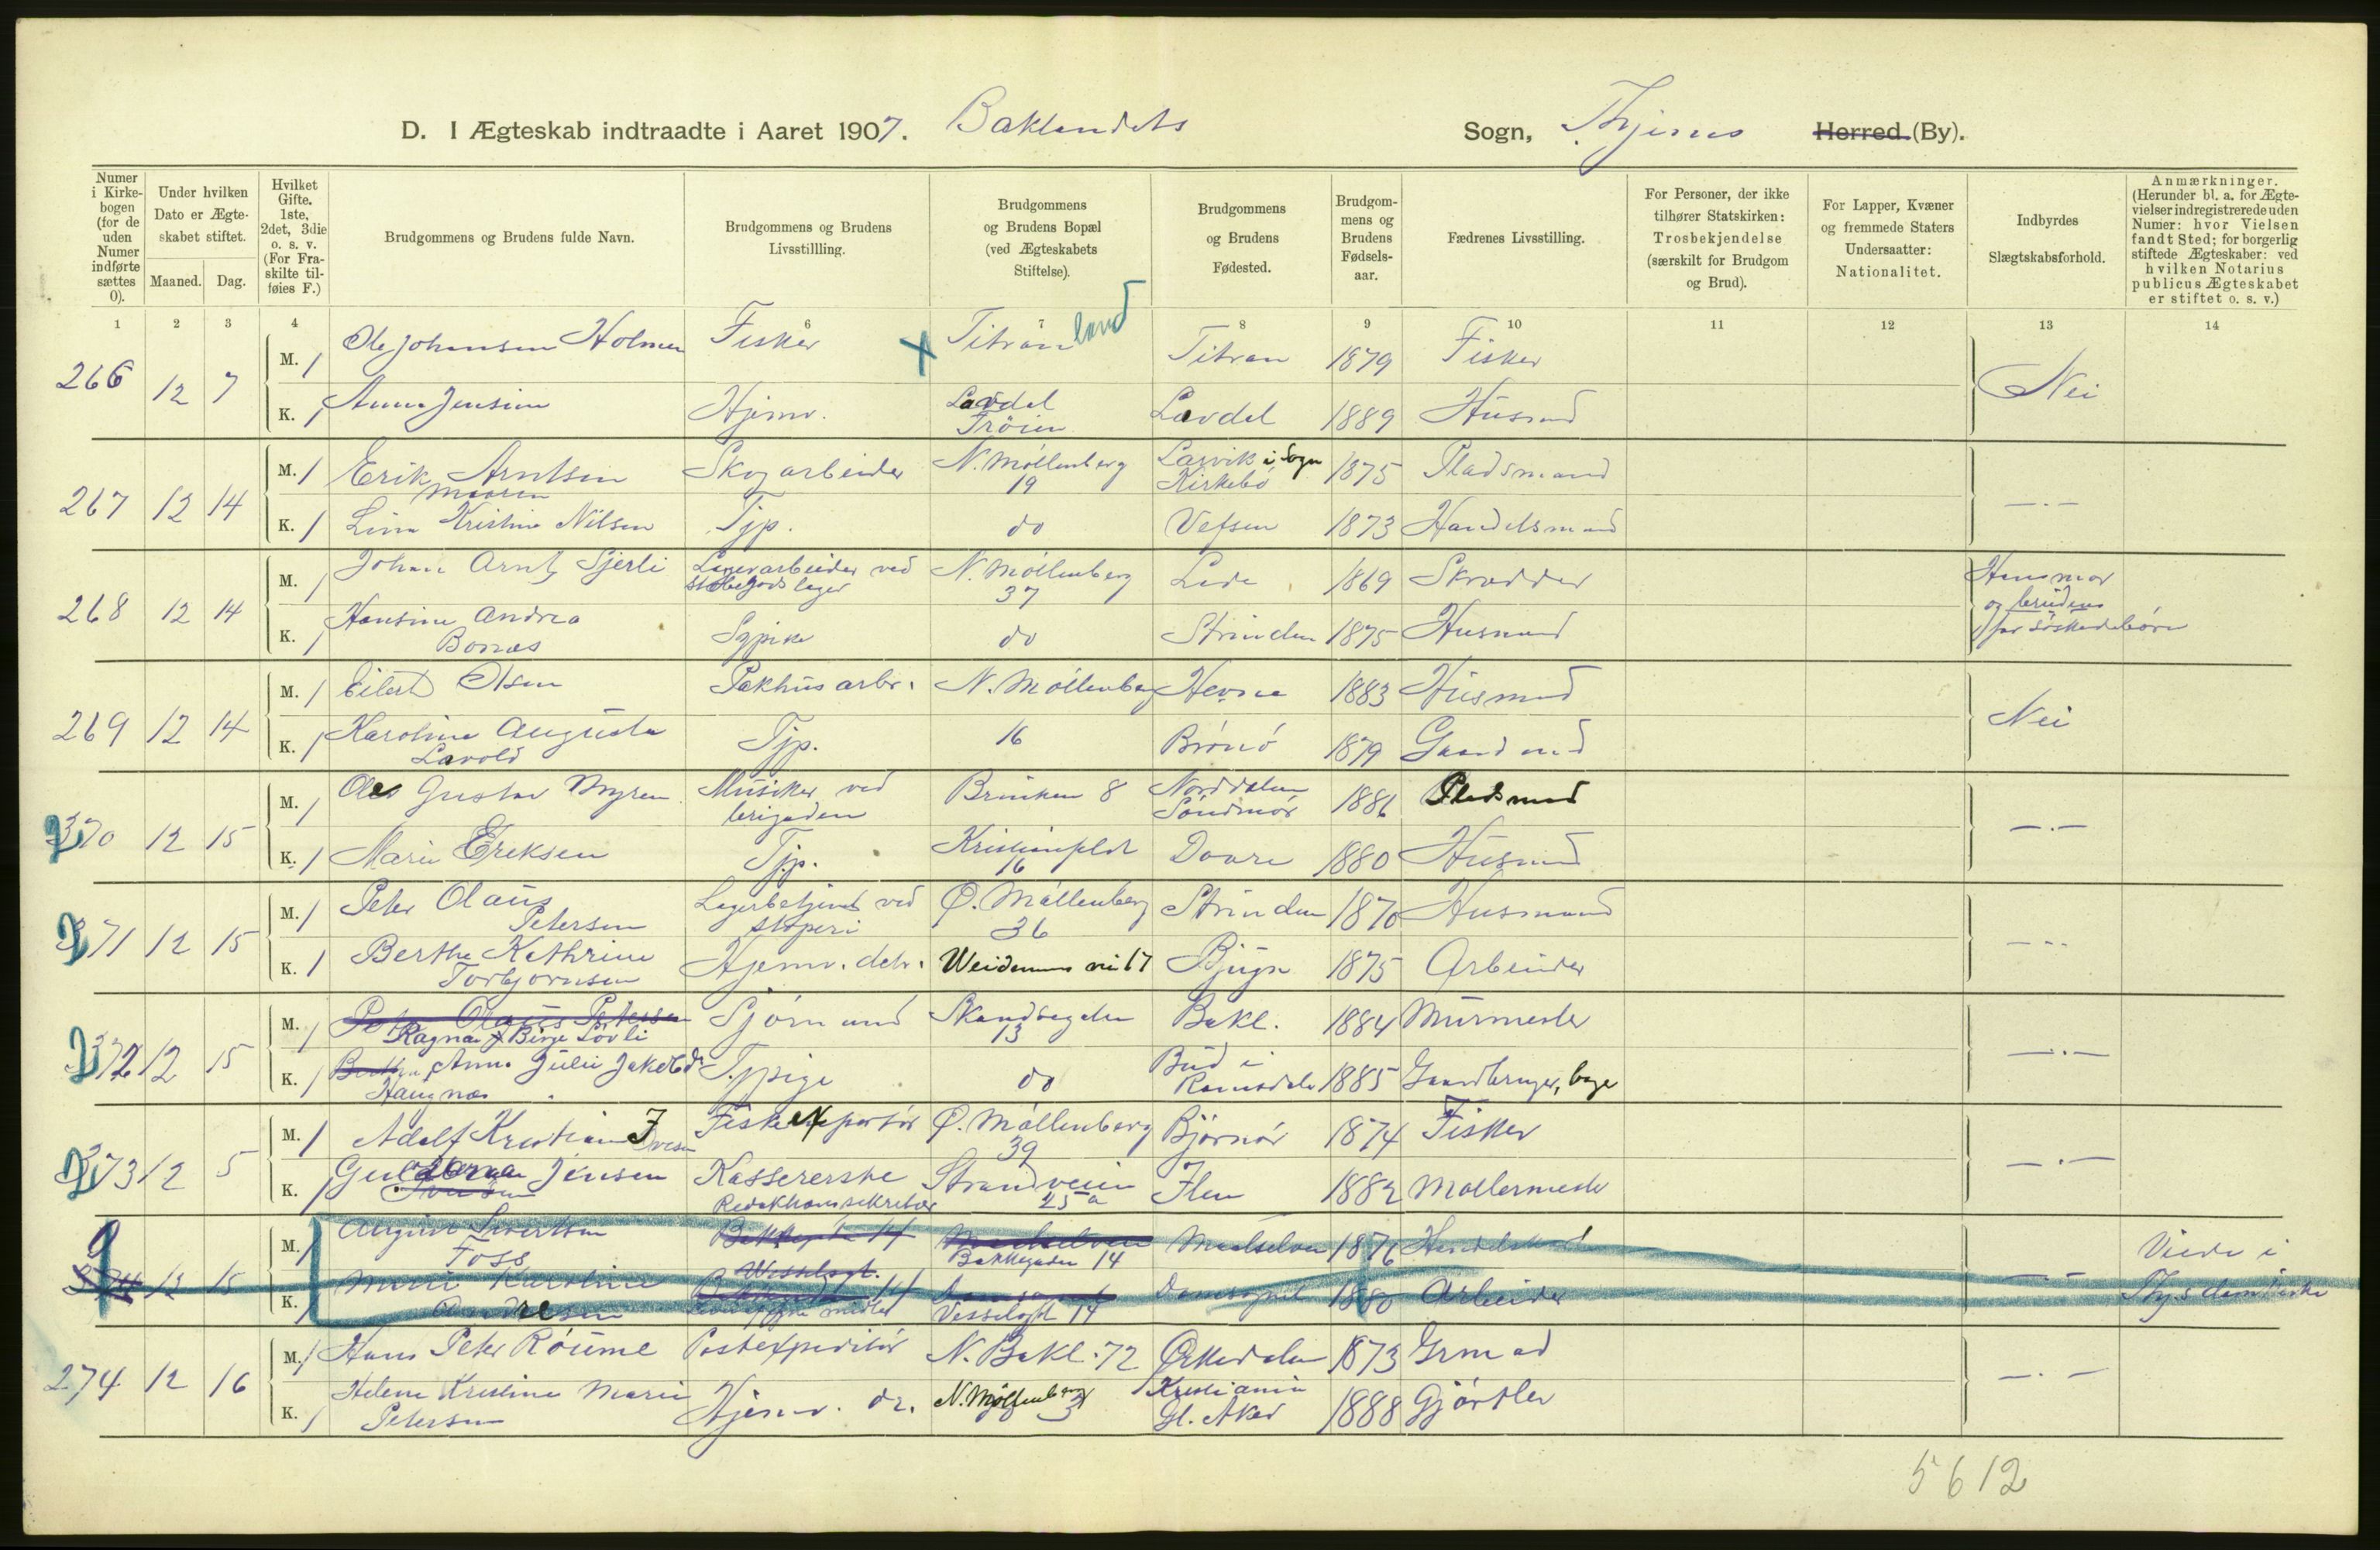 D. I Ægteskab indtraadte i Aaret 1907. Baklandets Sogn, Thjems Herred (By).
Numer i Kirkebogen (for de uden Numer indførte sættes 0).
Under hvilken Dato er Ægteskabet stiftet.
Maaned. Dag.
Hvilket Gifte. 1ste, 2det, 3die o. s. v. (For Fraskilte tilføies F.)
Brudgommens og Brudens fulde Navn.
Brudgommens og Brudens Livsstillling.
Brudgommens og Brudens Bopæl (ved Ægteskabets Stiftelse).
Brudgommens og Brudens Fødested.
Brudgommens og Brudens Fødselsaar.
Fædrenes Livsstilling.
For Personer, der ikke tilhører Statskirken: Trosbekjendelse (særskilt for Brudgom og Brud).
For Lapper, Kvæner og fremmede Staters Undersaatter: Nationalitet.
Indbyrdes Slægtskabsforhold.
Anmærkninger. (Herunder bl. a. for Ægtevielser indregistrerede uden Numer: hvor Vielsen fandt Sted; for borgerlig stiftede Ægteskaber: ved hvilken Notarius publicus Ægteskabet er stiftet o. s. v.)
1 2 3 4 6 7 8 9 10 11 12 13 14
266 12 7 M. / Ole Johansen Holmen Fisker Titran land Titran 1879 Fisker Nei
K. / Anna Jensen Hjemv. Lavdal Fröien Lavdal 1889 Husmd
267 12 14 M. / Erik Arntsen Skogarbeider N. Möllenberg 19 Lavvik i Sogn Kirkebö 1875 Pladsmand —.—
K. / Lina Kristine Nilsen Tjp. do Vefsen 1873 Handelsmand
268 12 14 M. / Johan Arnt Sjerli Lagerarbeider ved stobegods lager N. Möllenberg 37 Lade 1869 Skrædder Hans mor og brudens far söskendebörn
K. / Hansine Andrea Bonæs Sypike do Strinden 1875 Husmand
269 12 14 M. / Eilert Olsen Pakhusarbr. N. Möllenberg Hevne 1883 Husmand Nei
K. / Karoline Augusta Lavold Tjp. 16 Brönö 1879 Gaardmd
270 12 15 M. / Gustav Myren Musiker ved brigaden Brinken 8 Norddalen Söndmör 1886 Pladsmd —.—
K. / Marie Ereksen Tjp. Kristianfeldt 16 Dovre 1880 Husmd
271 12 15 M. / Peter Olaus Petersen Lagerbetjent ved støperi Ø. Möllenberg 36 Strinden 1870 Husmand —.—
K. / Bertha Kathrine Torbjörnsen Hjemv. datr. Weidemans vei 17 Bjugn 1875 Arbeider
272 12 15 M. / Peter Olaus Petersen Ragnar Birge Lövli Sjömand 13 Bakl. 1884 Murmester —.—
K. / Bertha Anna Julie Jakobd. Haugnæs Tjpige do Bud i Romsdalen 1885 Gaardbruger,
273 12 5 M. / Adolf Kristian Iversen Fiskexportör Ø. Möllenberg 39 Björnör 1874 Fisker —.—
K. / Jensen Kassererske Strandveien 25 a Ilen 1882 Möllermester
12 15 M. August Sivertsen Foss Redaktionssekretær Bakkegaden 14 Maalselven 1876 Viede i
K. Marie Karoline Andresen Vesselsgt 14 1880 Arbeider
274 12 16 M. / Hans Peter Röume Postexpeditör N. Bakl. 72 Ørkedalen 1873 Grmad —.—
K. / Helene Kristine Marie Petersen Hjemv. dr. N. Möllenberg 3 Kristiania Gl. Aker 1888 Gjörtler
5612